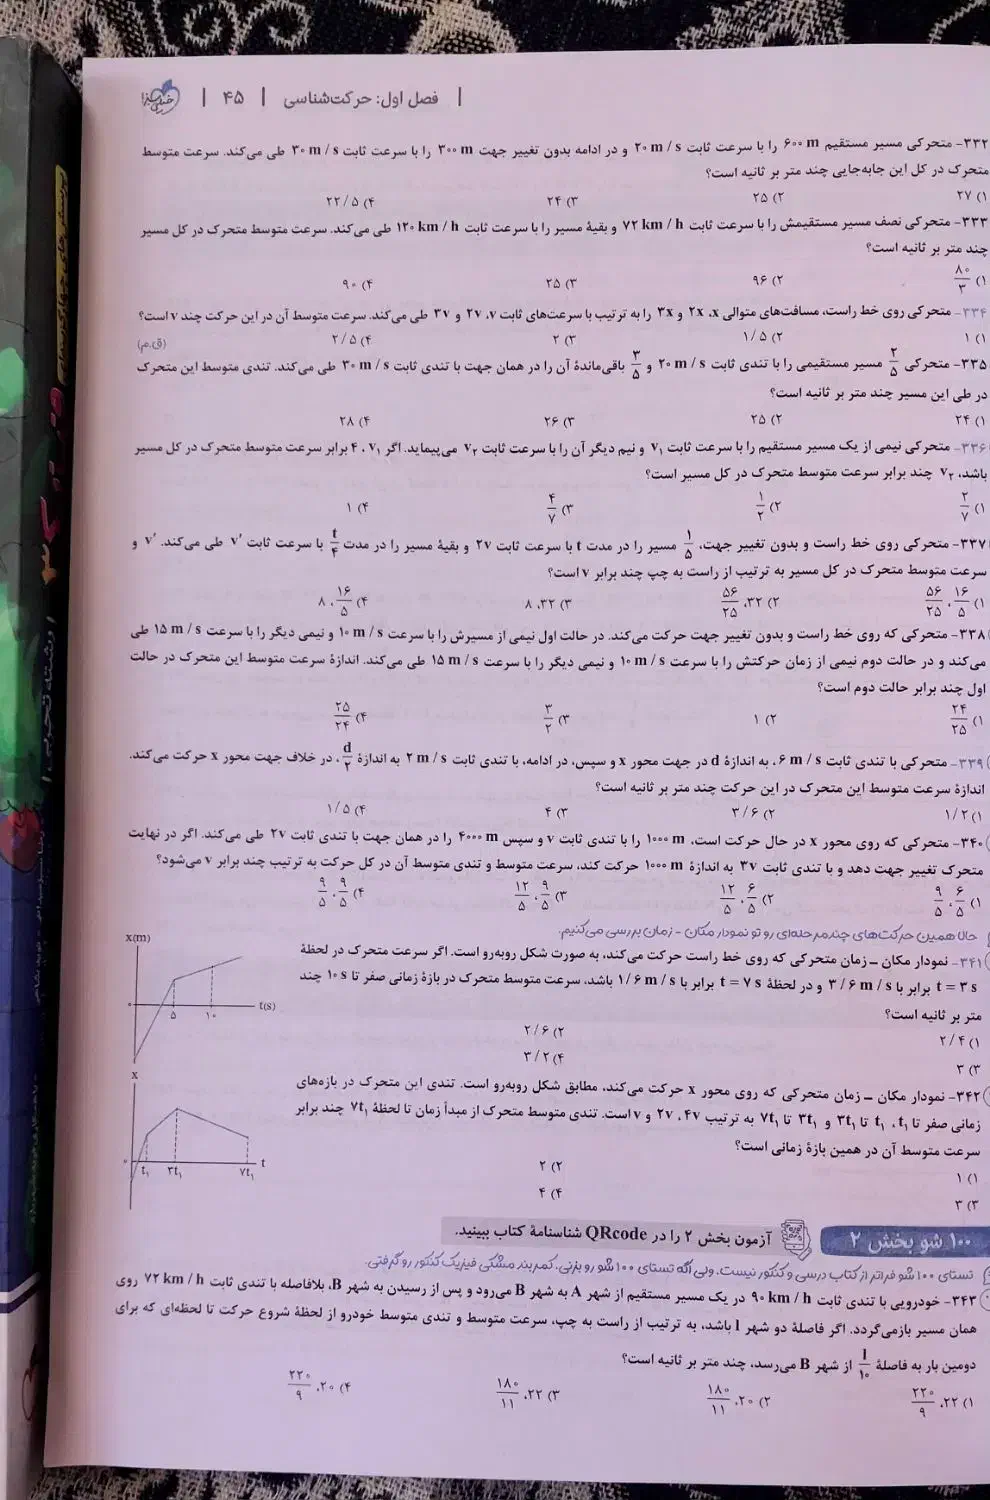 فصل اول: حرکت‌شناسی | ۴۵ |
۳۳۲- متحرکی مسیر مستقیم ۶۰۰ m را با سرعت ثابت ۲۰ m / s و در ادامه بدون تغییر جهت ۳۰۰ m را با سرعت ثابت ۳۰ m / s طی می‌کند. سرعت متوسط
متحرک در کل این جابه‌جایی چند متر بر ثانیه است؟
۱) ۲۷ ۲) ۲۵ ۳) ۲۴ ۴) ۲۲/۵
۳۳۳- متحرکی نصف مسیر مستقیمش را با سرعت ثابت ۷۲ km / h و بقیهٔ مسیر را با سرعت ثابت ۱۲۰ km / h طی می‌کند. سرعت متوسط متحرک در کل مسیر
چند متر بر ثانیه است؟
۱) ۸۰/۳ ۲) ۹۶ ۳) ۲۵ ۴) ۹۰
۳۳۴- متحرکی روی خط راست، مسافت‌های متوالی x، ۲x و ۳x را به ترتیب با سرعت‌های ثابت v، ۲v و ۳v طی می‌کند. سرعت متوسط آن در این حرکت چند v است؟
۱) ۱ ۲) ۱/۵ ۳) ۲ ۴) ۲/۵ (ق.م)
۳۳۵- متحرکی ۲/۵ مسیر مستقیمی را با تندی ثابت ۲۰ m / s و ۳/۵ باقی‌ماندهٔ آن را در همان جهت با تندی ثابت ۳۰ m / s طی می‌کند. تندی متوسط این متحرک
در طی این مسیر چند متر بر ثانیه است؟
۱) ۲۴ ۲) ۲۵ ۳) ۲۶ ۴) ۲۸
۳۳۶- متحرکی نیمی از یک مسیر مستقیم را با سرعت ثابت v₁ و نیم دیگر آن را با سرعت ثابت v₂ می‌پیماید. اگر v₁، ۴ برابر سرعت متوسط متحرک در کل مسیر
باشد، v₂ چند برابر سرعت متوسط متحرک در کل مسیر است؟
۱) ۲/۷ ۲) ۱/۲ ۳) ۴/۷ ۴) ۱
۳۳۷- متحرکی روی خط راست و بدون تغییر جهت، ۱/۵ مسیر را در مدت t با سرعت ثابت ۲v و بقیهٔ مسیر را در مدت t/۴ با سرعت ثابت v′ طی می‌کند. v′ و
سرعت متوسط متحرک در کل مسیر به ترتیب از راست به چپ چند برابر v است؟
۱) ۱۶/۵، ۵۶/۲۵ ۲) ۳۲، ۵۶/۲۵ ۳) ۳۲، ۸ ۴) ۱۶/۵، ۸
۳۳۸- متحرکی که روی خط راست و بدون تغییر جهت حرکت می‌کند. در حالت اول نیمی از مسیرش را با سرعت ۱۰ m / s و نیمی دیگر را با سرعت ۱۵ m / s طی
می‌کند و در حالت دوم نیمی از زمان حرکتش را با سرعت ۱۰ m / s و نیمی دیگر را با سرعت ۱۵ m / s طی می‌کند. اندازهٔ سرعت متوسط این متحرک در حالت
اول چند برابر حالت دوم است؟
۱) ۲۴/۲۵ ۲) ۱ ۳) ۳/۲ ۴) ۲۵/۲۴
۳۳۹- متحرکی با تندی ثابت ۶ m / s، به اندازهٔ d در جهت محور x و سپس، در ادامه، با تندی ثابت ۲ m / s به اندازهٔ d/۲، در خلاف جهت محور x حرکت می‌کند.
اندازهٔ سرعت متوسط این متحرک در این حرکت چند متر بر ثانیه است؟
۱) ۱/۲ ۲) ۳/۶ ۳) ۴ ۴) ۱/۵
۳۴۰- متحرکی که روی محور x در حال حرکت است، ۱۰۰۰ m را با تندی ثابت v و سپس ۴۰۰۰ m را در همان جهت با تندی ثابت ۲v طی می‌کند. اگر در نهایت
متحرک تغییر جهت دهد و با تندی ثابت ۳v به اندازهٔ ۱۰۰۰ m حرکت کند، سرعت متوسط و تندی متوسط آن در کل حرکت به ترتیب چند برابر v می‌شود؟
۱) ۶/۵، ۹/۵ ۲) ۶/۵، ۱۲/۵ ۳) ۹/۵، ۱۲/۵ ۴) ۹/۵، ۹/۵
حالا همین حرکت‌های چندمرحله‌ای رو تو نمودار مکان - زمان بررسی می‌کنیم.
۳۴۱- نمودار مکان – زمان متحرکی که روی خط راست حرکت می‌کند، به صورت شکل روبه‌رو است. اگر سرعت متحرک در لحظهٔ
t = ۳ s برابر با ۳/۶ m / s و در لحظهٔ t = ۷ s برابر با ۱/۶ m / s باشد، سرعت متوسط متحرک در بازهٔ زمانی صفر تا ۱۰ s چند
متر بر ثانیه است؟
۱) ۲/۴ ۲) ۲/۶
۳) ۳ ۴) ۳/۲
x(m)
۰ ۵ ۱۰ t(s)
۳۴۲- نمودار مکان – زمان متحرکی که روی محور x حرکت می‌کند، مطابق شکل روبه‌رو است. تندی این متحرک در بازه‌های
زمانی صفر تا t₁، t₁ تا ۳t₁ و ۳t₁ تا ۷t₁ به ترتیب ۴v، ۲v و v است. تندی متوسط متحرک از مبدأ زمان تا لحظهٔ ۷t₁ چند برابر
سرعت متوسط آن در همین بازهٔ زمانی است؟
۱) ۱ ۲) ۲
۳) ۳ ۴) ۴
x
۰ t₁ ۳t₁ ۷t₁ t
۱۰۰ شو بخش ۲ آزمون بخش ۲ را در QRcode شناسنامهٔ کتاب ببینید.
تستای ۱۰۰ شو فراتر از کتاب درسی و کنکور نیست، ولی اگه تستای ۱۰۰ شو رو بزنی، کمربند مشکی فیزیک کنکور رو گرفتی.
۳۴۳- خودرویی با تندی ثابت ۹۰ km / h در یک مسیر مستقیم از شهر A به شهر B می‌رود و پس از رسیدن به شهر B، بلافاصله با تندی ثابت ۷۲ km / h روی
همان مسیر بازمی‌گردد. اگر فاصلهٔ دو شهر l باشد، به ترتیب از راست به چپ، سرعت متوسط و تندی متوسط خودرو از لحظهٔ شروع حرکت تا لحظه‌ای که برای
دومین بار به فاصلهٔ l/۱۰ از شهر B می‌رسد، چند متر بر ثانیه است؟
۱) ۲۲، ۲۲۰/۹ ۲) ۲۰، ۱۸۰/۱۱ ۳) ۲۲، ۱۸۰/۱۱ ۴) ۲۰، ۲۲۰/۹